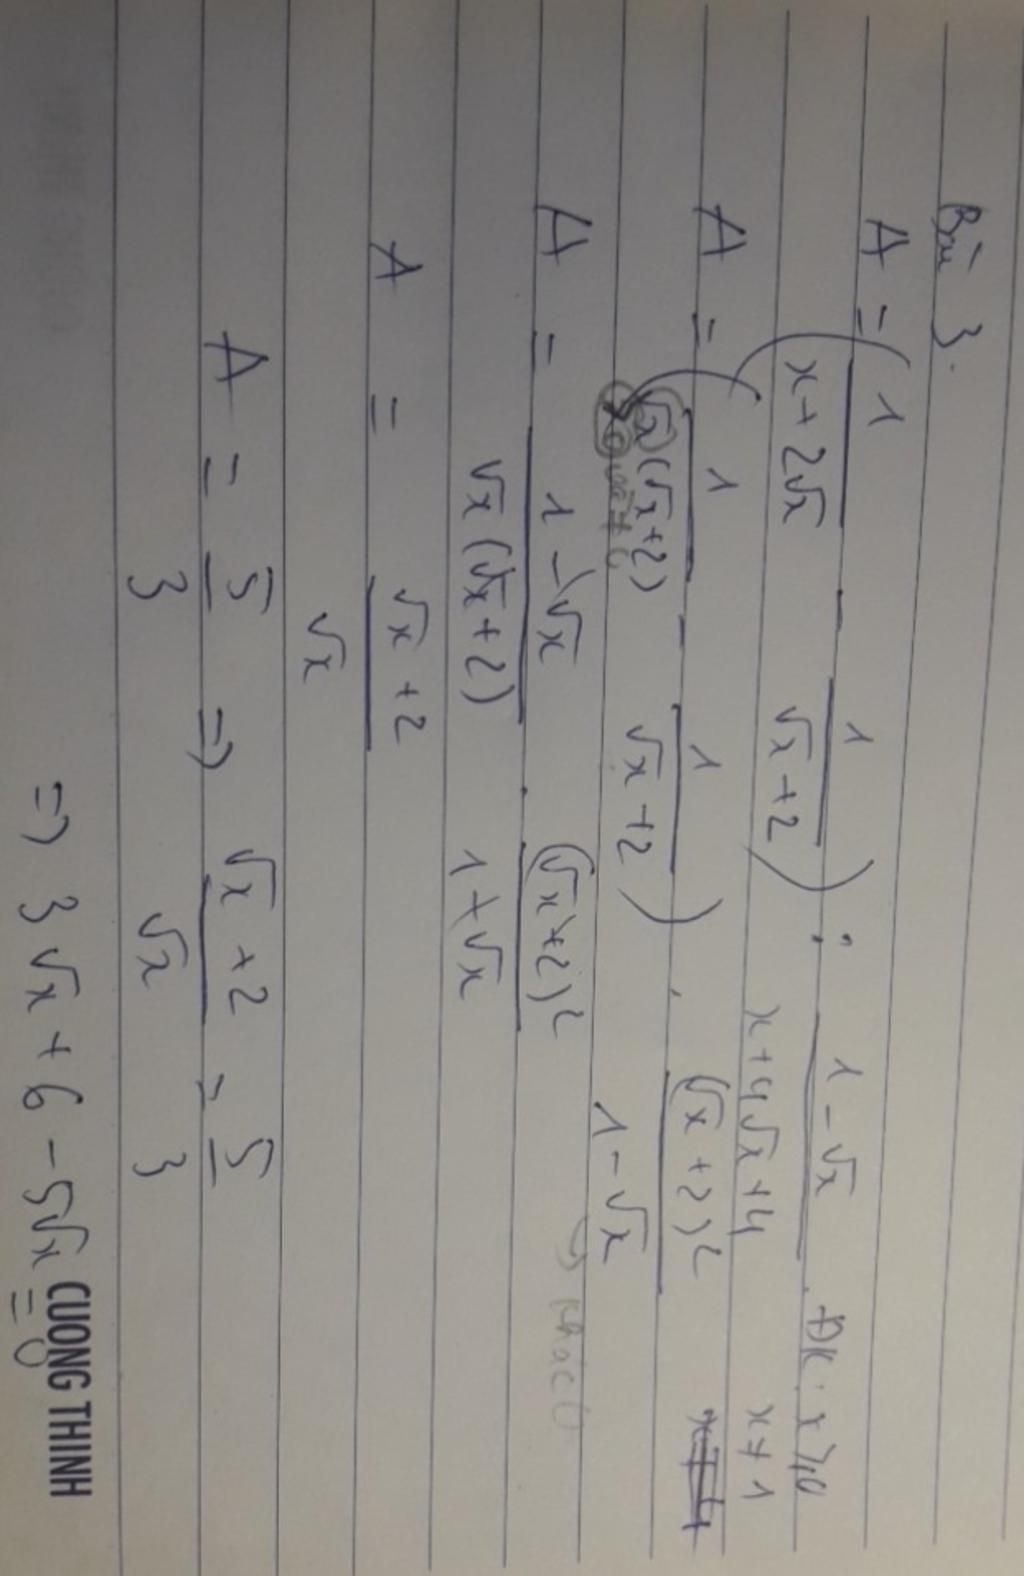 Bài 3.
A = ( 1/(x+2√x) - 1/(√x+2) ) : (1-√x)/(x+4√x+4) . ĐK: x>0
x≠1
A = ( 1/(√x(√x+2)) - 1/(√x+2) ) . (√x+2)²/(1-√x)
→ khác 0
A = (1-√x)/(√x(√x+2)) . (√x+2)²/(1-√x)
A = (√x+2)/√x
A = 5/3 => (√x+2)/√x = 5/3
=> 3√x + 6 - 5√x = 0
CUONG THINH